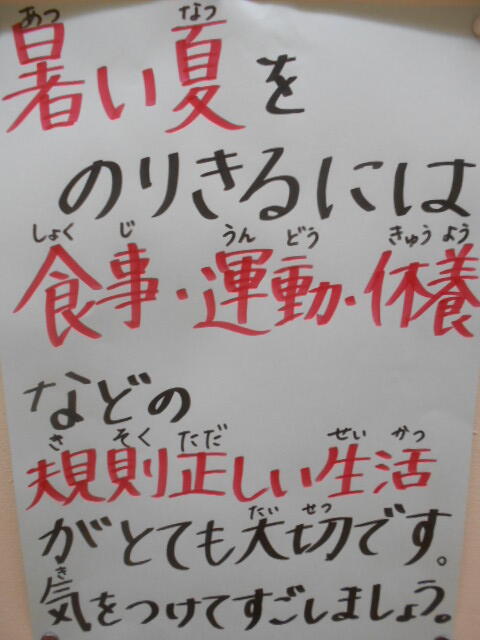 あつ なつ
暑い夏を
のりきるには
しょく じ うん どう きゅう よう
食事・運動・休養
などの
さ そく ただ せい かつ
規則正しい生活
たい せつ
がとても大切です。
き
気をつけてすごしましょう。